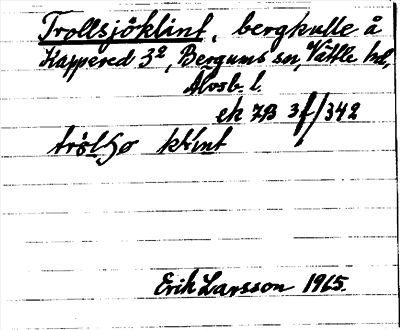 Trollsjöklint, bergkulle å
Kappered 3², Bergums sn, Vättle hd,
Älvsb. l.
ek 7B 3f/342
klint
Erik Larsson 1965.